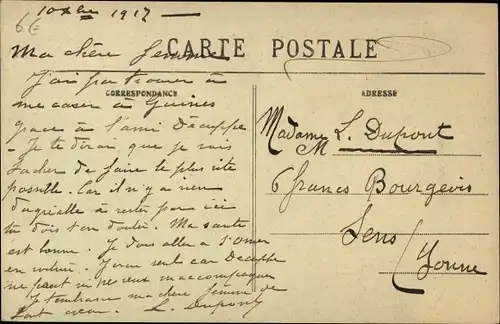 10 xbre 1917
6€
Ma chère femme
CARTE POSTALE
CORRESPONDANCE
J'ai pu trouver à
me caser à Guines
grace à l'ami Décuppe
- Je te dirai que je vais
tacher de faire le plus vite
possible. Car il n'y a rien
d'agréable à rester par ici
tu dois t'en douter. Ma santé
est bonne. Je dois aller à St Omer
en voiture. seul car Decuppe
ne peut m'accompagner
Je t'embrasse ma chère femme de
tout cœur. L. Dupont
ADRESSE
Madame L. Dupont
M
6 francs Bourgeois
Sens
Yonne